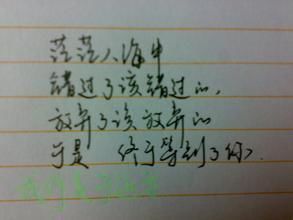 茫茫人海中
错过了该错过的,
放弃了该放弃的
于是 终于等到了你